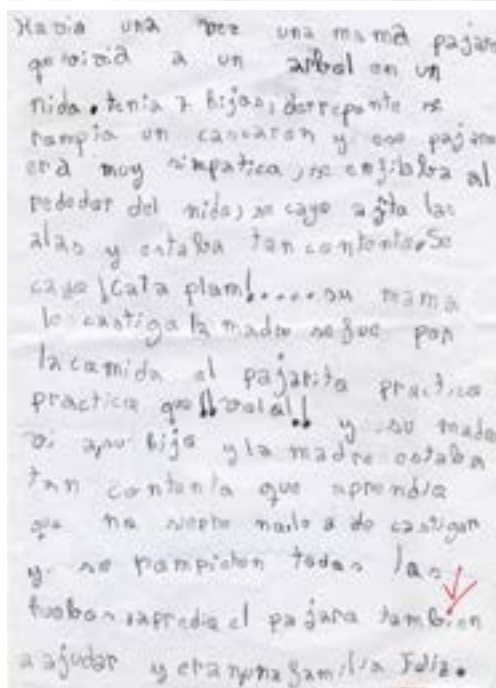 Havia una vez una mama pajaro
que vivia a un arbol en un
nido. tenia 7 hijos, derrepente se
rompio un cascaron y ese pajaro
era muy simpatico, se al
rededor del nido, se cayo las
alas y estaba tan contento. Se
cayo ¡Cata plam!..... su mama
lo castigo la madre se fue por
la comida el pajarito practica
practica que !!vola!! y su madre
vi a su hijo y la madre estaba
tan contenta que aprendio
que no siepre a de castigar
y se rompieron todos los
huebos apredio el pajaro tambien
a ajudar y eran una familia Feliz.